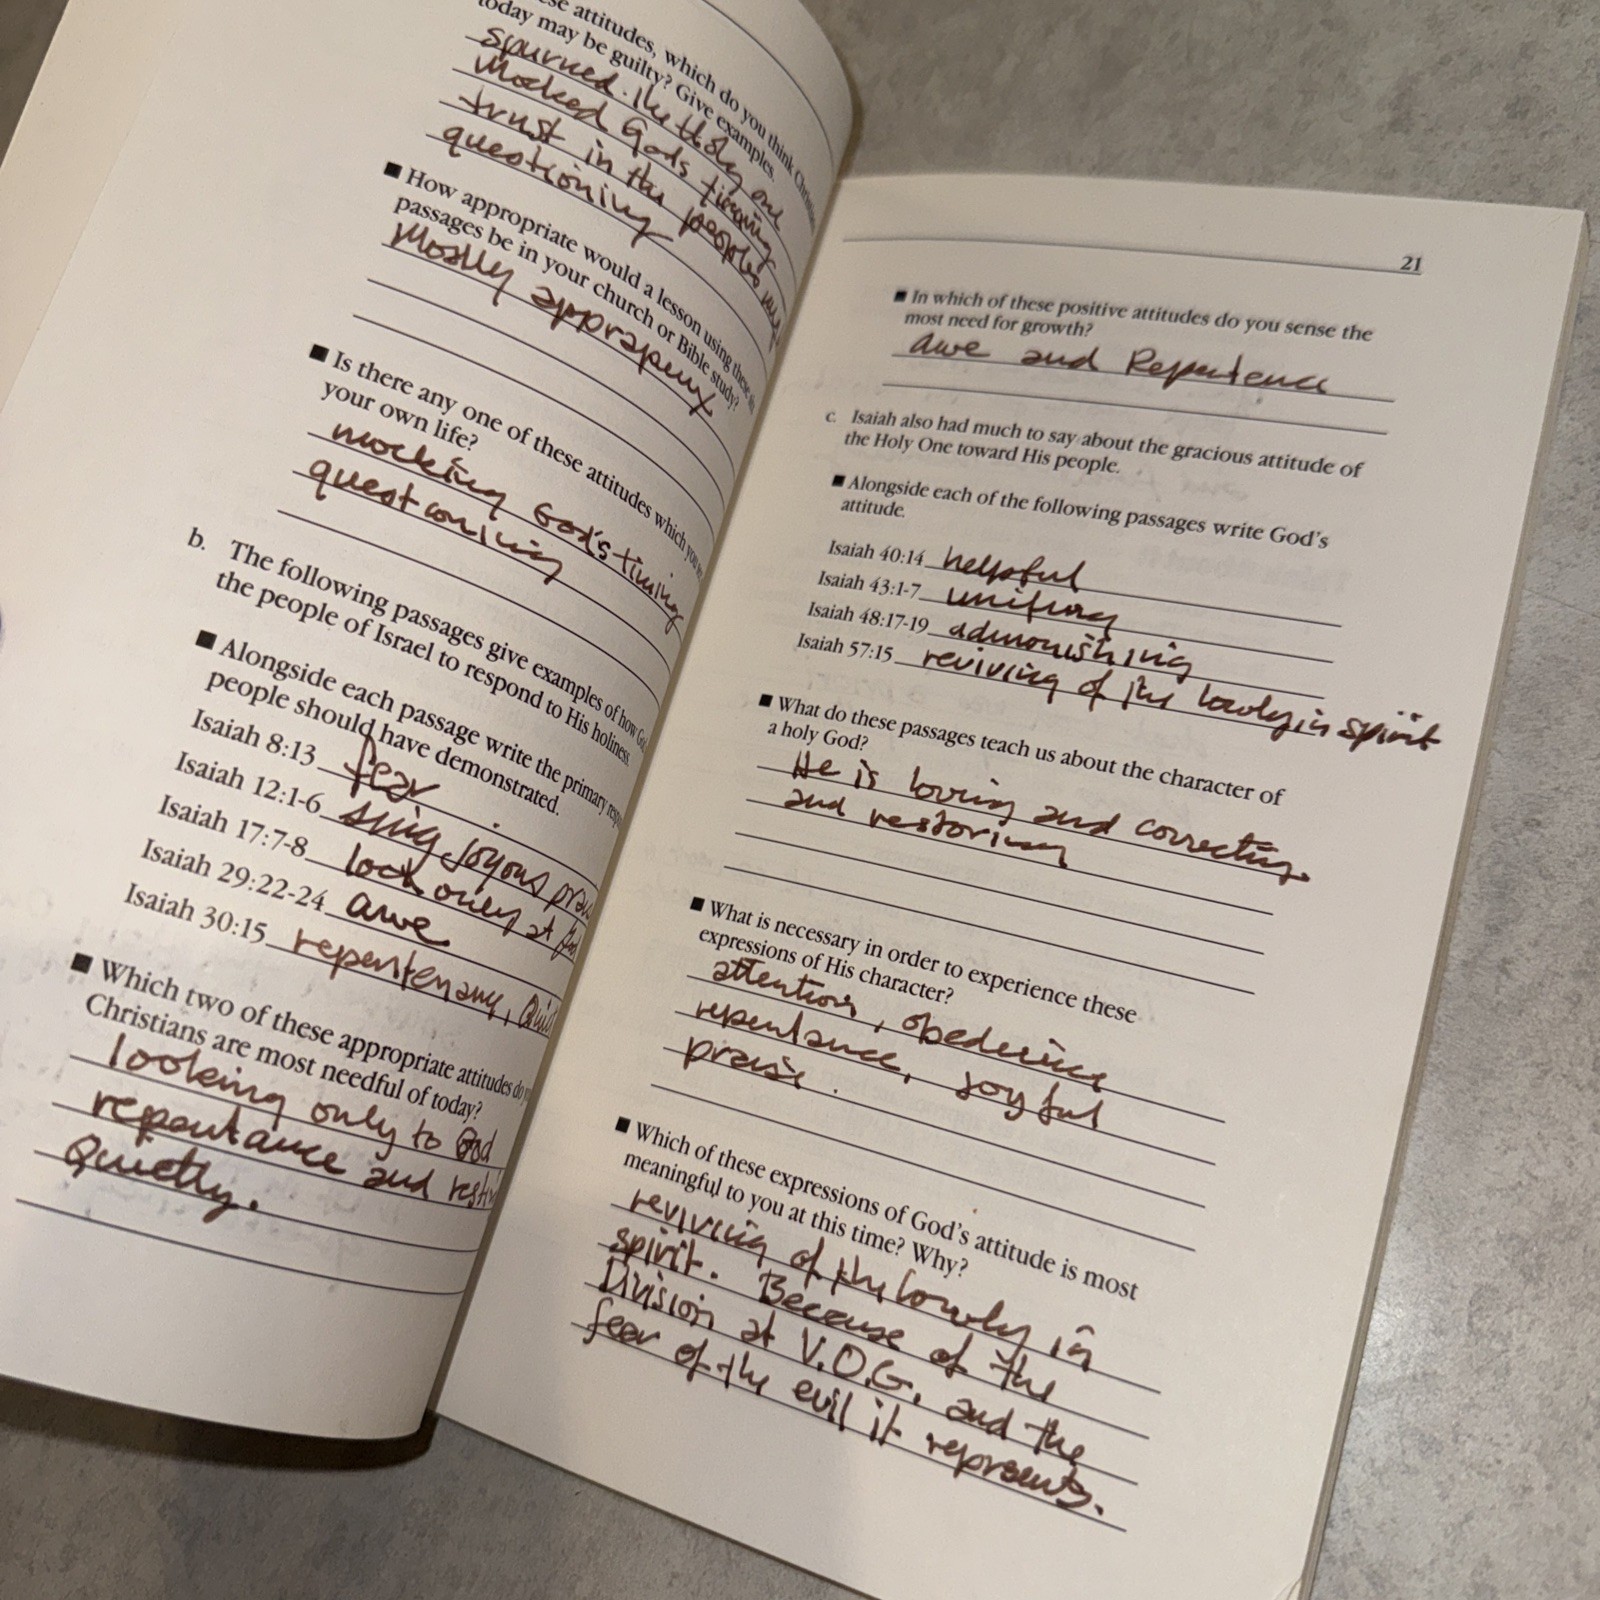 ese attitudes, which do you think Christians
today may be guilty? Give examples.
spurned. the Holy one
Mocked God's timing
trust in the peoples
questioning
■ How appropriate would a lesson using these
passages be in your church or Bible study?
Mostly
■ Is there any one of these attitudes which you
your own life?
mocking God's timing
questioning
b. The following passages give examples of how God
the people of Israel to respond to His holiness.
■ Alongside each passage write the primary resp
people should have demonstrated.
Isaiah 8:13 fear
Isaiah 12:1-6 sing joyous
Isaiah 17:7-8 look only at
Isaiah 29:22-24 awe
Isaiah 30:15
■ Which two of these appropriate attitudes do
Christians are most needful of today?
looking only to God
repentance and
Quietly.
21
■ In which of these positive attitudes do you sense the
most need for growth?
awe and
c. Isaiah also had much to say about the gracious attitude of
the Holy One toward His people.
■ Alongside each of the following passages write God's
attitude.
Isaiah 40:14 helpful
Isaiah 43:1-7
Isaiah 48:17-19 admonishing
Isaiah 57:15 reviving of the lowly in spirit
■ What do these passages teach us about the character of
a holy God?
He is loving and correcting.
and restoring
■ What is necessary in order to experience these
expressions of His character?
attention, obedience
repentance, joyful
praise.
■ Which of these expressions of God's attitude is most
meaningful to you at this time? Why?
reviving of the lowly in
spirit. Because of the
Division at V.O.G. and the
fear of the evil it represents.